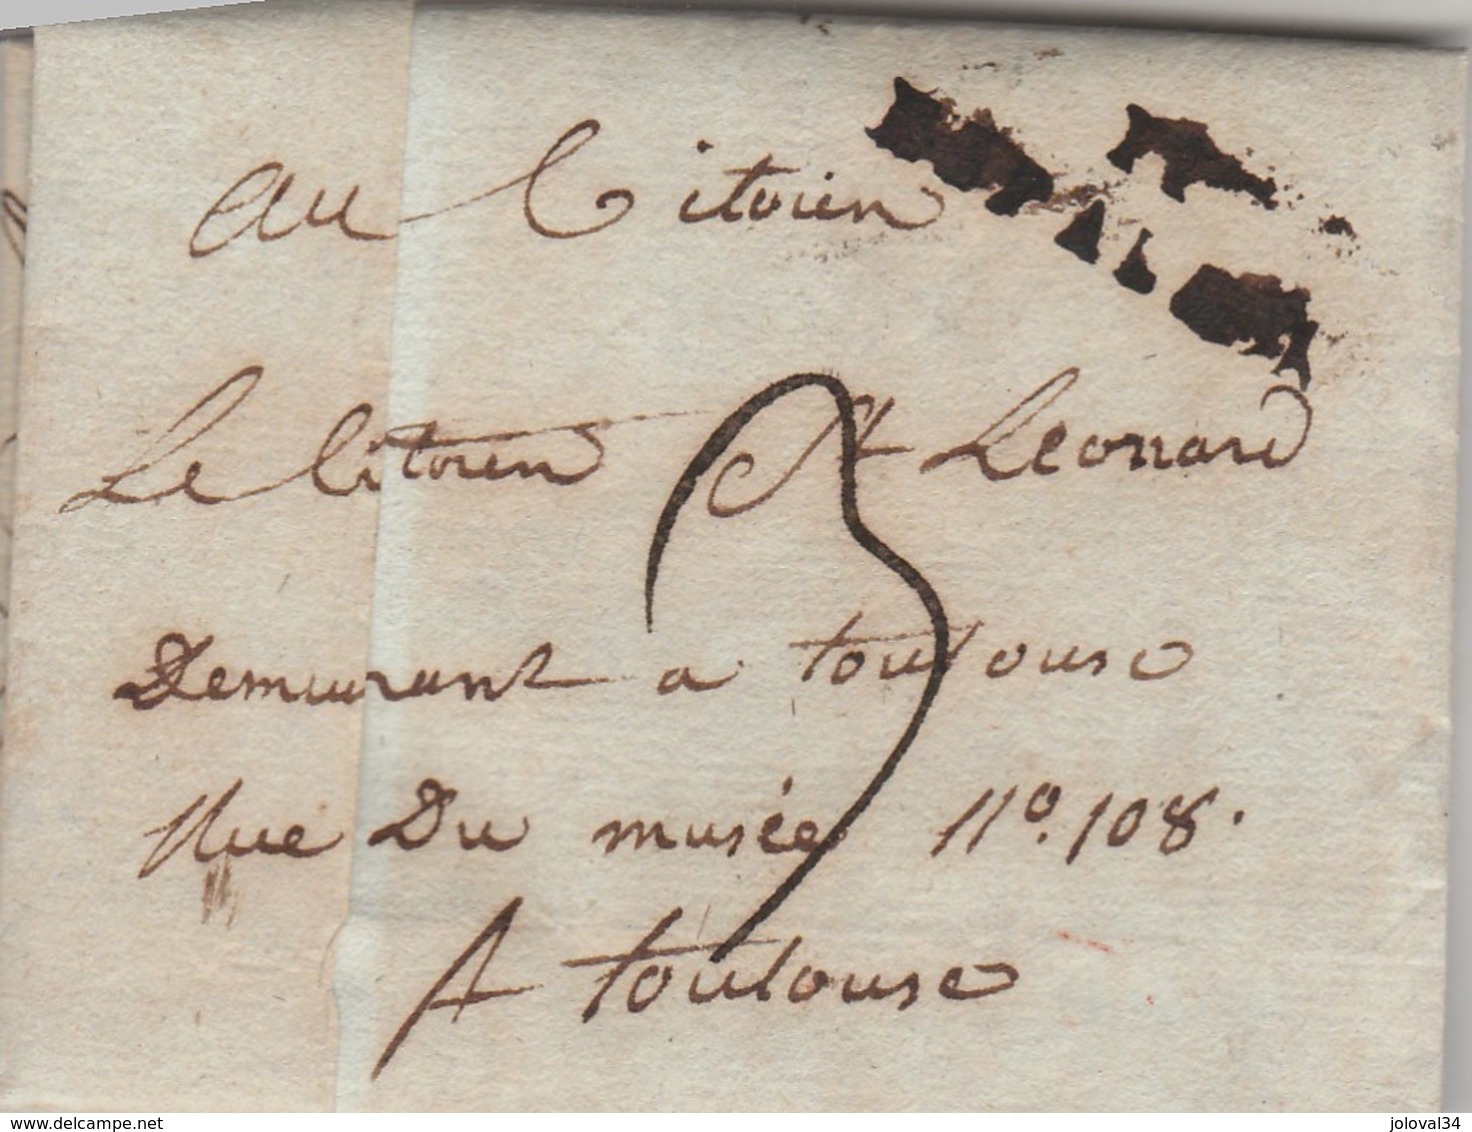 au Citoien
Le Citoien St Leonard
3
Demurant a toulouse
Rue Du musée no. 108.
A toulouse
delcampe.net
joloval34